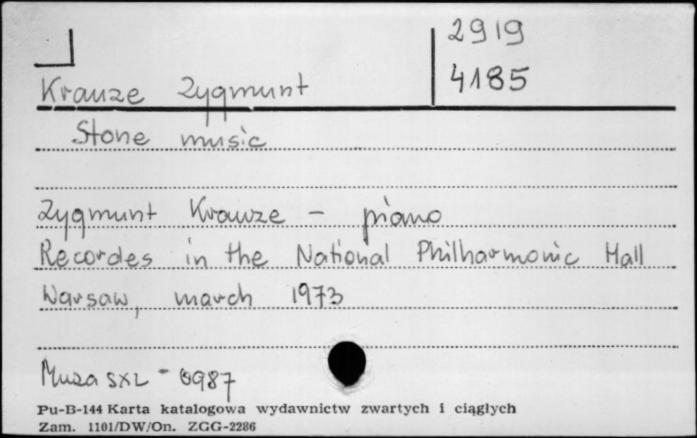 2919
4185
Krauze Zygmunt
Stone music
Zygmunt Krauze - piano
Recordes in the National Philharmonic Hall
Warsaw, march 1973
Muza SXL - 0987
Pu-B-144 Karta katalogowa wydawnictw zwartych i ciągłych
Zam. 1101/DW/On. ZGG-2286